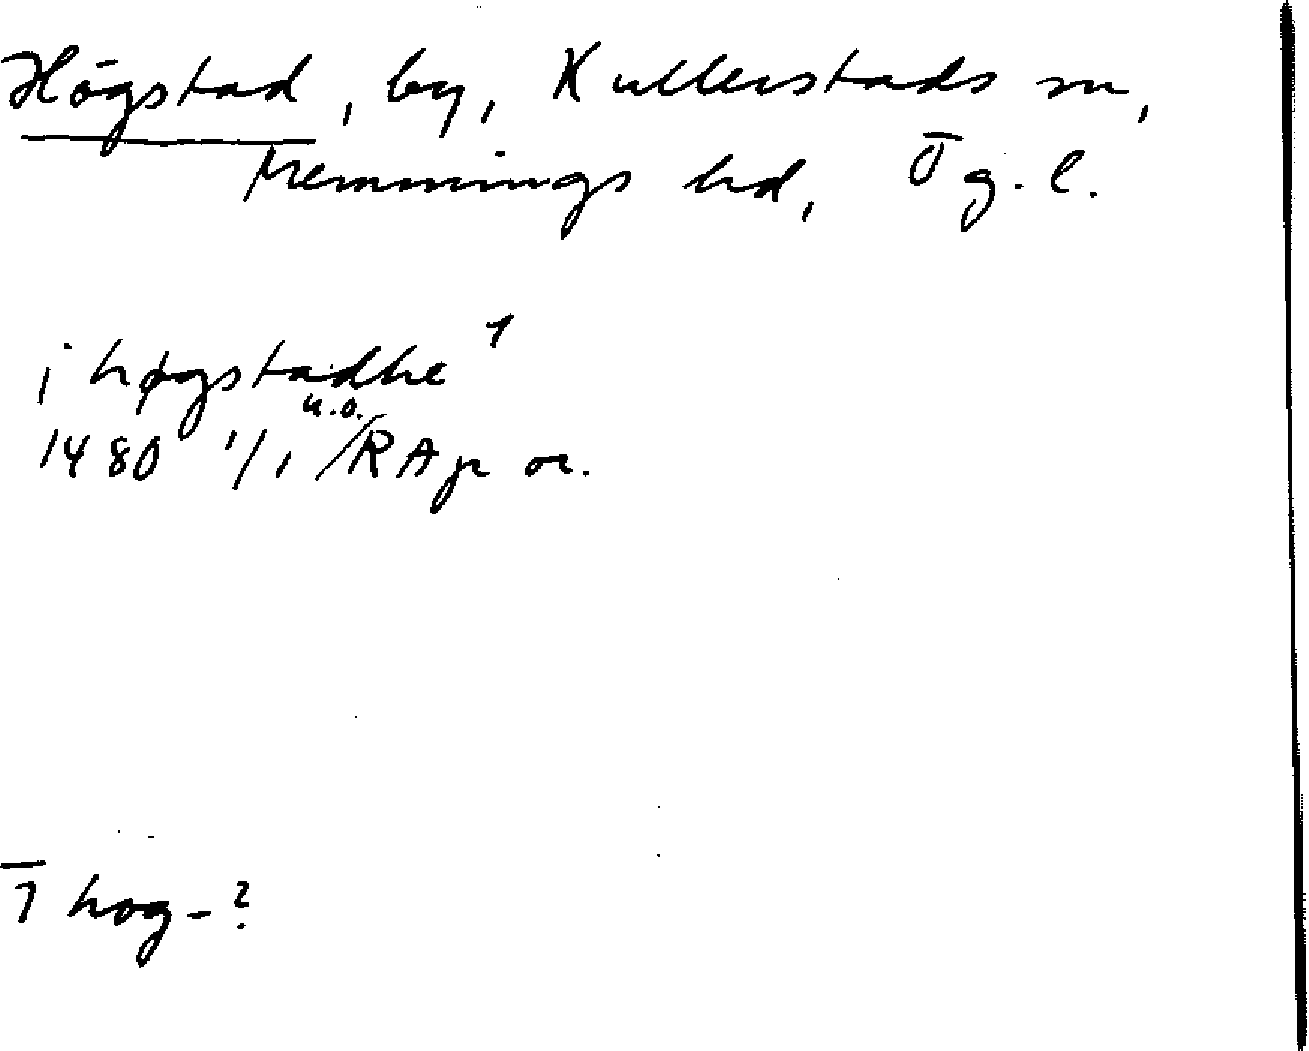 Högstad, by, Kullerstads sn,
Memmings hd, Ög. l.
i høgstadhe 1
1480 1/1 u.o. /RAp or.
1 hog-?